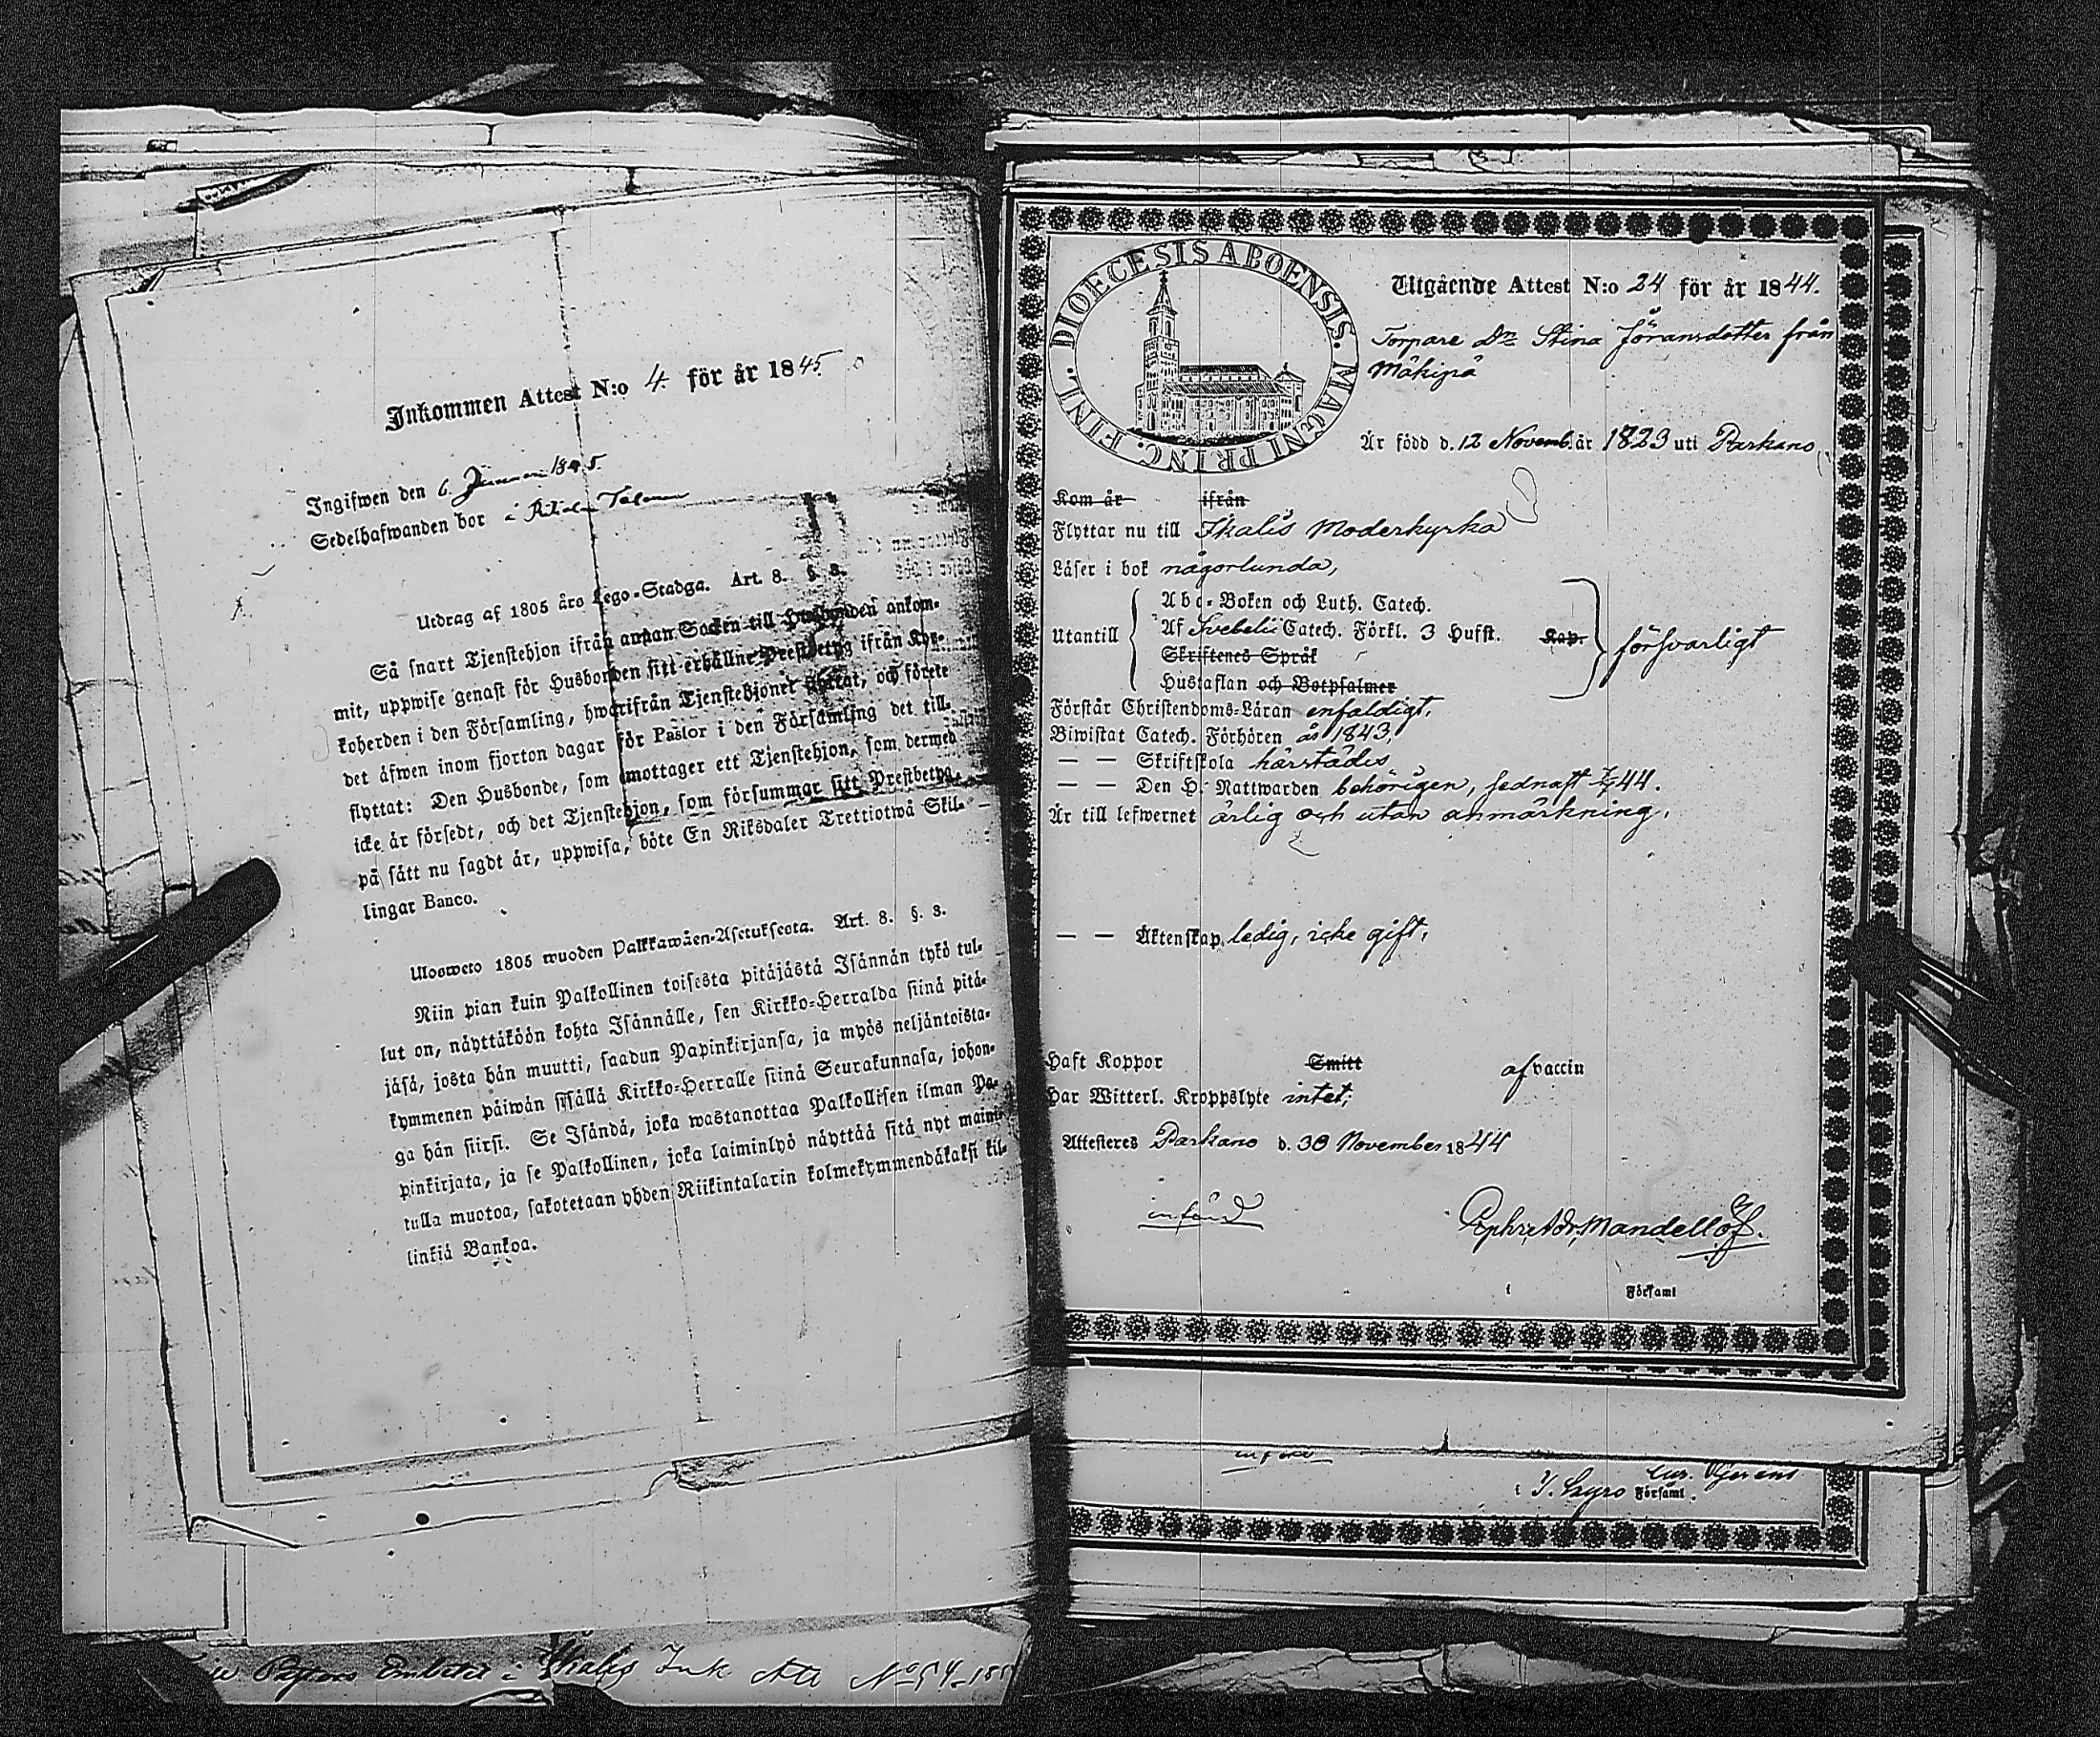 Inkommen Attest N:o 4. för år 1845.
Ingifwen den 6 Januari 1845.
Sedelhafwanden bor i
Utdrag af 1805 års Lego-Stadga. Art. 8. §. 3.
Så snart Tjenstehjon ifrån annan Socken till Husbonden ankom-
mit, uppwise genast för Husbonden sitt erhållne Prestbetyg ifrån Kyr-
koherden i den Församling, hwarifrån Tjenstehjonet flyttat, och förete
det åfwen inom fjorton dagar för Pastor i den Församling det till-
flyttat: Den Husbonde, som emottager ett Tjenstehjon, som dermed
icke är försedt, och det Tjenstehjon, som försummar sitt Prestbetyg,
på sätt nu sagdt är, uppwisa, böte En Riksdaler Trettiotwå Skil-
lingar Banco.
Ulosweto 1805 wuoden Palkkawäen-Asetuksesta. Art. 8. §. 3.
Niin pian kuin Palkollinen toisesta pitäjästä Isännän tykö tul-
lut on, näyttäköön kohta Isännälle, sen Kirkko-Herralda siinä pitä-
jäsä, josta hän muutti, saadun Papinkirjansa, ja myös neljäntoista-
kymmenen päiwän sisällä Kirkko-Herralle siinä Seurakunnasa, johon-
ga hän siirsi. Se Isändä, joka wastanottaa Palkollisen ilman Pa-
pinkirjata, ja se Palkollinen, joka laiminlyö näyttää sitä nyt maini-
tulla muotoa, sakotetaan yhden Riikintalarin kolmekymmendäkaksi kil-
linkiä Bankoa.
Pastors Embetet i Ikalis Ink Att No 54
DIOECESIS ABOENSIS. MAGNI PRINC. FINL.
Utgående Attest N:o 24 för år 1844.
Torpare Dr Stina Jöransdotter från
Mäkipä
Är född d. 12 Novemb. år 1823 uti Parkano
Kom år ifrån
Flyttar nu till Ikalis Moderkyrka
Läser i bok någorlunda,
Utantill
Abc-Boken och Luth. Catech.
Af Svebelii Catech. Förkl. 3 Hufst. Kap.
Skriftenes Språk
Hustaflan och Botpsalmer
försvarligt
Förstår Christendoms-Läran enfaldigt,
Biwistat Catech. Förhören år 1843,
— — Skriftskola härstädes
— — Den H. Nattwarden behörigen, sednast 44.
Är till lefwernet ärlig och utan anmärkning,
— — Äktenskap ledig, icke gift,
Haft Koppor Smitt af vaccin
Har Witterl. Kroppslyte intet;
Attesteres Parkano d. 30 November 1844
Mandellöf.
i Församl
i Församl.